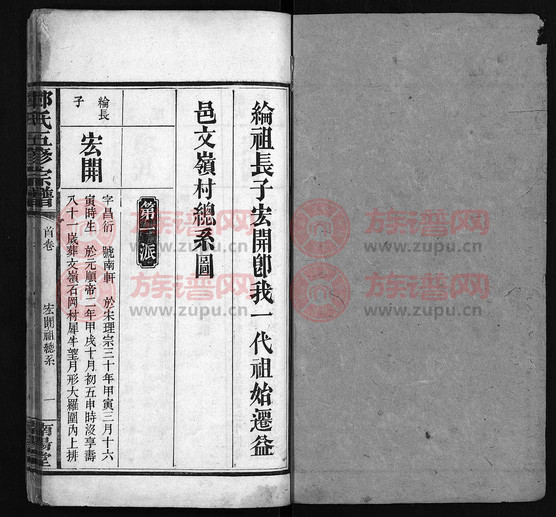 綸祖長子宏開卽我一代祖始遷益
邑文嶺村總系圖
第一派
綸長
子
宏開
字昌衍 號南軒 於宋理宗三十年甲寅三月十六
寅時生 於元順帝二年甲戌十月初五申時沒享壽
八十一歲葬文嶺石岡村犀牛望月形大羅圍內上排
氏五修宗譜
首卷
宏開祖總系
一
南陽堂
族谱网
www.zupu.cn
族谱网
www.zupu.cn
族谱网
www.zupu.cn
族谱网
www.zupu.cn